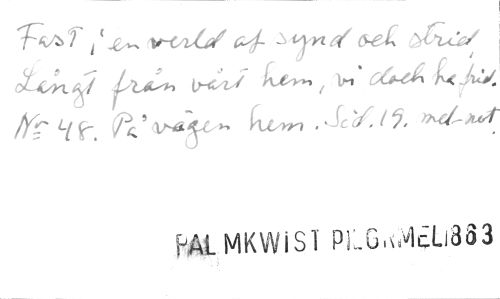 Fast i en verld af synd och strid,
Långt från vårt hem, vi doch ha frid.
Nr 48. På vägen hem. Sid. 19. mel-not.
PALMKWIST PILGRMEL1863